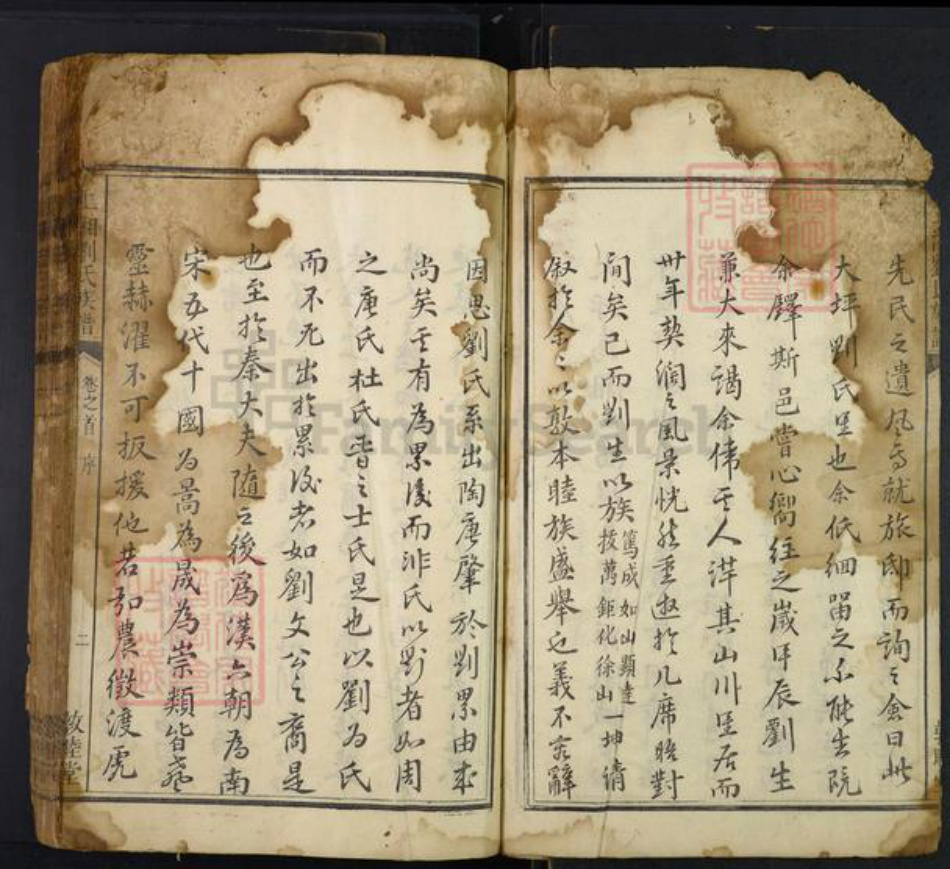 先民之遺風焉就旅邸而詢之僉曰此
大坪劉氏里也余低細留之不能去既
余鐸斯邑嘗心嚮往之歲甲辰劉生
兼大來謁余偉其人洋其山川里居而
卅年契濶之風景恍然重遊於几席晤對
間矣已而劉生以族篤成如山顯達拔萬鉅化徐山一坤請
敘於余余以敦本睦族盛舉也義不容辭
因思劉氏系出陶唐肇於劉累由求
尚矣其有為累後而非氏以劉者如周
之唐氏杜氏晉之士氏是也以劉為氏
而不允出於累後者如劉文公之裔是
也至於秦大夫隨之後為漢六朝為南
宋五代十國為暠為晟為崇類皆
靈赫濯不可扳援他若弘農徵渡虎
劉氏族譜
卷之首 序
二
敦睦堂
FamilySearch